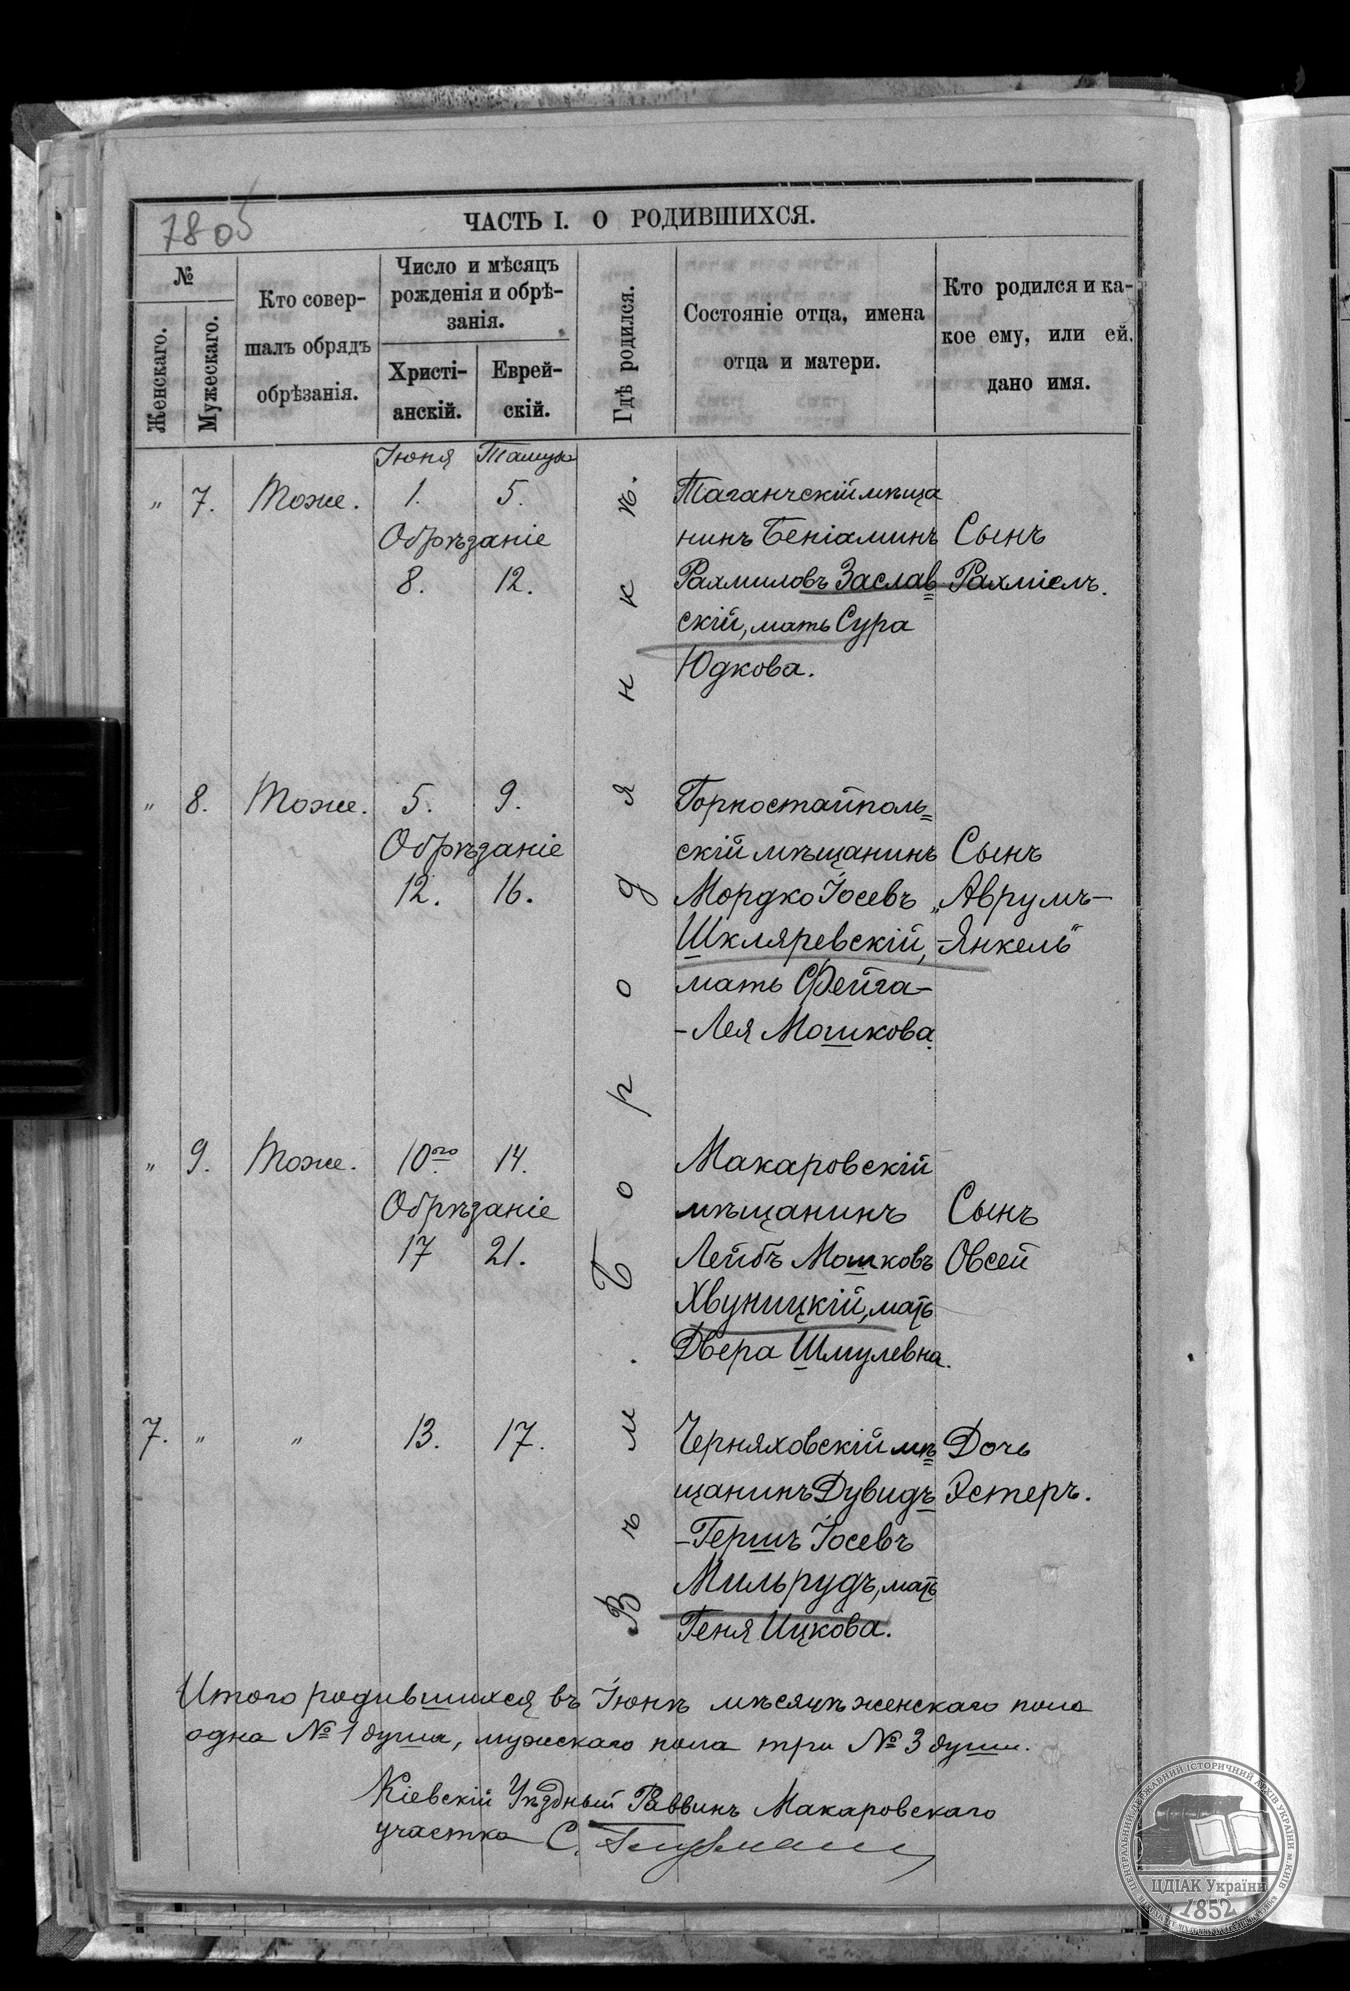 7805
ЧАСТЬ I. О РОДИВШИХСЯ.
№
Женскаго.
Мужескаго.
Кто совер-
шалъ обрядъ
обрѣзанія.
Число и мѣсяцъ
рожденія и обрѣ-
занія.
Христі-
анскій.
Еврей-
скій.
Гдѣ родился.
Состояніе отца, имена
отца и матери.
Кто родился и ка-
кое ему, или ей,
дано имя.
Въ м. Бородянкѣ.
Іюня Тамуза
„ 7. Тоже. 1. 5.
Обрѣзаніе
8. 12.
Таганчскій мѣща
нинъ Беніаминъ
Рахмиловъ Заслав=
скій, мать Сура
Юдкова.
Сынъ
Рахміелъ.
„ 8. Тоже. 5. 9.
Обрѣзаніе
12. 16.
Горностайполь=
скій мѣщанинъ
Мордко Іосевъ
Шкляревскій,
мать Фейга-
-Лея Мошкова.
Сынъ
„Аврумъ-
-Янкель"
„ 9. Тоже. 10го 14.
Обрѣзаніе
17 21.
Макаровскій
мѣщанинъ
Лейбъ Мошковъ
Хвуницкій, мать
Двера Шмулевна.
Сынъ
Овсей
7. „ „ 13. 17.
Черняховскій мѣ=
щанинъ Дувидъ
-Гершъ Іосевъ
Мильрудъ, мать
Геня Ицкова.
Дочь
Эстеръ.
Итого родившихся въ Іюнѣ мѣсяцѣ женскаго пола
одна № 1 душа, мужскаго пола три № 3 души.
Кіевскій Уѣздный Раввинъ Макаровскаго
участка С.
ЦЕНТРАЛЬНИЙ ДЕРЖАВНИЙ ІСТОРИЧНИЙ АРХІВ УКРАЇНИ М. КИЇВ
ЦДІАК України
1852